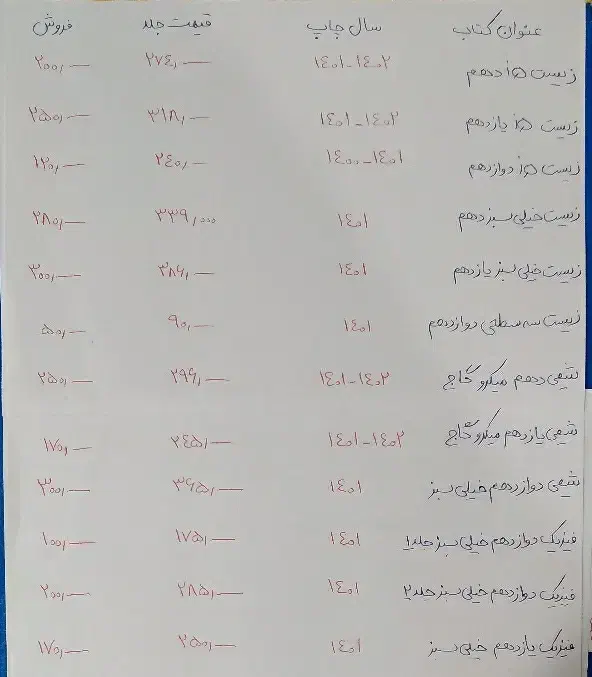 عنوان کتاب سال چاپ قیمت جلد فروش
زیست IQ دهم ۱۴۰۲-۱۴۰۱ ۲۷۴,— ۲۰۰,—
زیست IQ یازدهم ۱۴۰۲-۱۴۰۱ ۳۱۸,— ۲۵۰,—
زیست IQ دوازدهم ۱۴۰۱-۱۴۰۰ ۲۴۰,— ۱۲۰,—
زیست خیلی سبز دهم ۱۴۰۱ ۳۳۹,۰۰۰ ۲۸۰,—
زیست خیلی سبز یازدهم ۱۴۰۱ ۳۸۶,— ۳۰۰,—
زیست سه سطحی دوازدهم ۱۴۰۱ ۹۰,— ۵۰,—
شیمی دهم میکرو گاج ۱۴۰۲-۱۴۰۱ ۲۹۶,— ۲۵۰,—
شیمی یازدهم میکرو گاج ۱۴۰۲-۱۴۰۱ ۲۴۵,— ۱۷۰,—
شیمی دوازدهم خیلی سبز ۱۴۰۱ ۳۶۵,— ۳۰۰,—
فیزیک دوازدهم خیلی سبز جلد۱ ۱۴۰۱ ۱۷۵,— ۱۰۰,—
فیزیک دوازدهم خیلی سبز جلد۲ ۱۴۰۱ ۲۸۵,— ۲۰۰,—
فیزیک یازدهم خیلی سبز ۱۴۰۱ ۲۵۰,— ۱۷۰,—